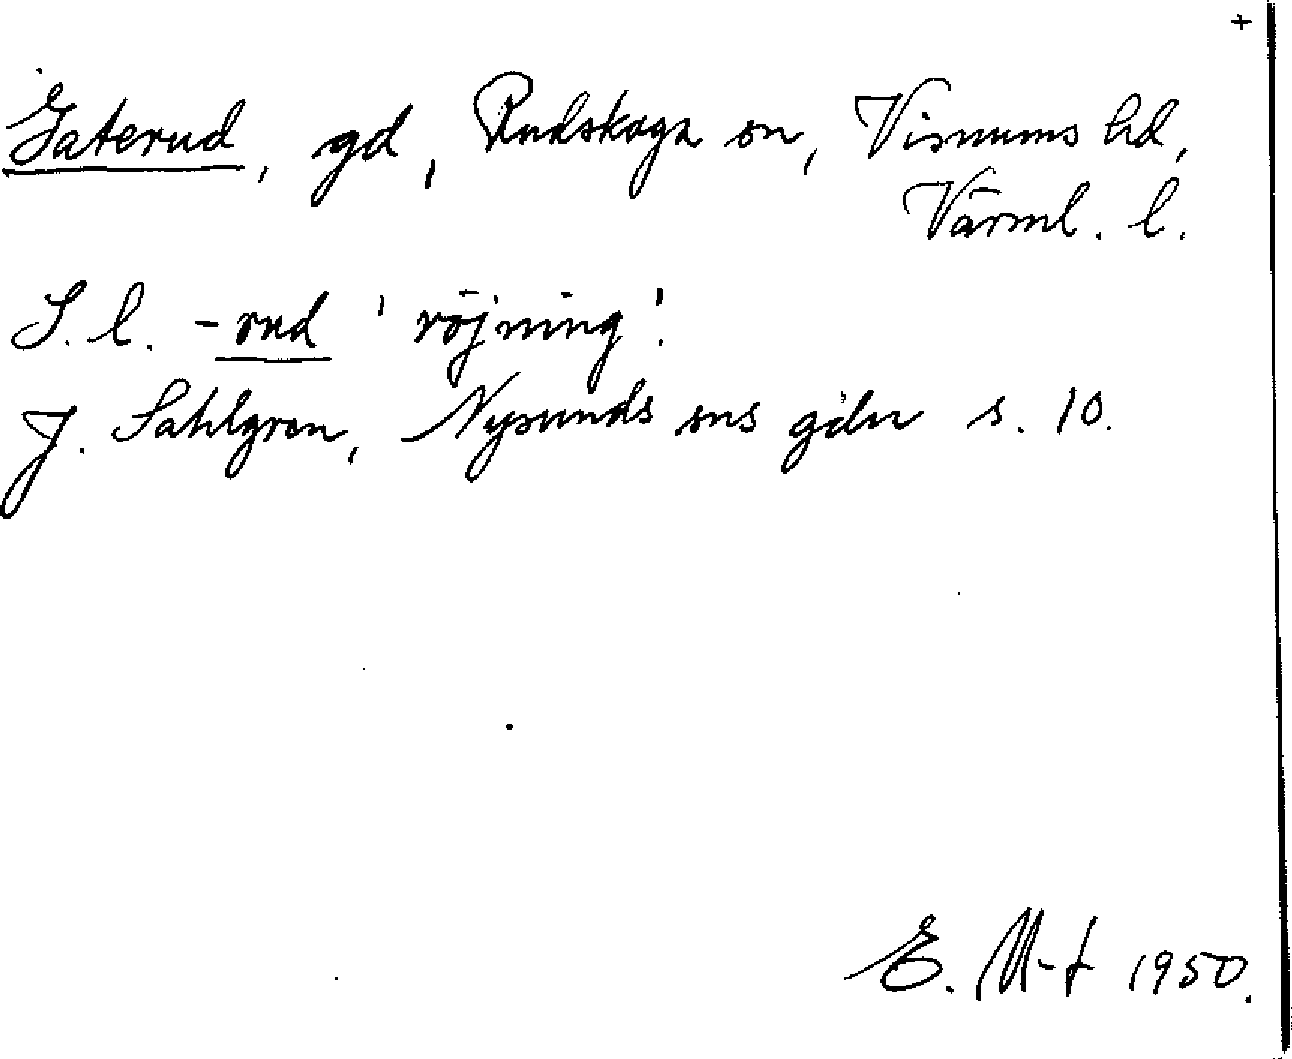 +
Gaterud, gd, Rudskoga sn, Visnums hd,
Värml. l.
S. l. -rud 'röjning'.
J. Sahlgren, Nysunds sns gdn s. 10.
E. M-t 1950.